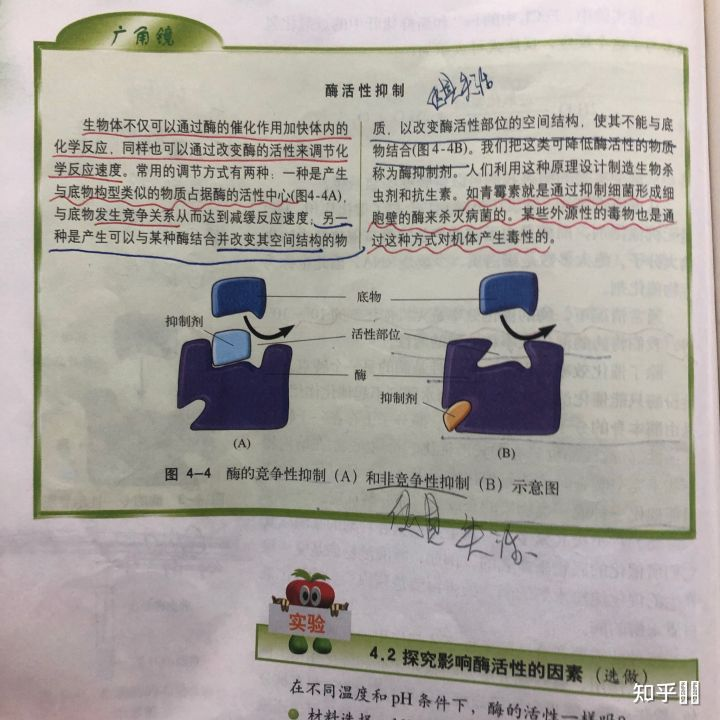 广角镜
酶活性抑制
生物体不仅可以通过酶的催化作用加快体内的
化学反应，同样也可以通过改变酶的活性来调节化
学反应速度。常用的调节方式有两种：一种是产生
与底物构型类似的物质占据酶的活性中心(图4-4A)，
与底物发生竞争关系从而达到减缓反应速度；另一
种是产生可以与某种酶结合并改变其空间结构的物
质，以改变酶活性部位的空间结构，使其不能与底
物结合(图4-4B)。我们把这类可降低酶活性的物质
称为酶抑制剂。人们利用这种原理设计制造生物杀
虫剂和抗生素。如青霉素就是通过抑制细菌形成细
胞壁的酶来杀灭病菌的。某些外源性的毒物也是通
过这种方式对机体产生毒性的。
底物
抑制剂
活性部位
酶
抑制剂
(A)
(B)
图 4-4 酶的竞争性抑制（A）和非竞争性抑制（B）示意图
实验
4.2 探究影响酶活性的因素（选做）
在不同温度和pH条件下，酶的活性一样吗
材料选择
知乎